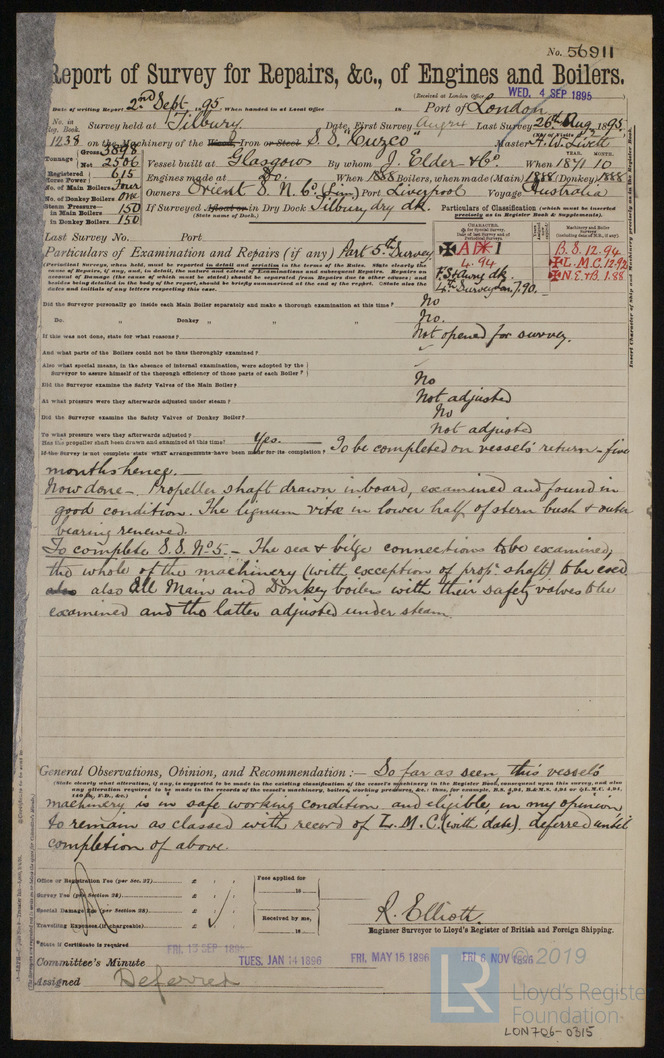 No. 56911
Report of Survey for Repairs, &c., of Engines and Boilers.
(Received at London Office WED. 4 SEP 1895)
Date of writing Report 2nd Sept. 1895, When handed in at Local Office 18 Port of London
No. in Reg. Book. Survey held at Tilbury. Date, First Survey Last Survey 26th Aug. 1895
(No. of Visits 2)
1238 on the Machinery of the Wood, Iron or Steel S.S. "Cuzco" Master A. W.
Tonnage Gross 3898 Net 2506 Vessel built at Glasgow By whom J. Elder & Co. When 1871 YEAR. MONTH. 10
Registered Horse Power 615 Engines made at Do. When 1888 Boilers, when made (Main) 1888 (Donkey) 1888
No. of Main Boilers Four Owners Orient S. N. Co. (Lim) Port Liverpool Voyage Australia
No. of Donkey Boilers One
Steam Pressure in Main Boilers 150 If Surveyed Afloat or in Dry Dock Tilbury dry dk.
in Donkey Boilers 150 (State name of Dock.)
Particulars of Classification (which must be inserted precisely as in Register Book & Supplements).
Last Survey No. Port
CHARACTER.
✠ A1 ✱ 1
4.94
4th Survey Lon. 7.90.
Machinery and Boiler Surveys
B.S. 12.94
✠ L.M.C. 12.92
✠ N.E.&B. 1.88
Particulars of Examination and Repairs (if any) Part 5th Survey
(Periodical Surveys, when held, must be reported in detail and seriatim in the terms of the Rules. State clearly the
cause of Repairs, if any, and, in detail, the nature and extent of Examinations and subsequent Repairs. Repairs on
account of Damage (the cause of which must be stated) should be separated from Repairs due to other causes; and
besides being detailed in the body of the report, should be briefly summarised at the end of the report. State also the
dates and initials of any letters respecting this case.
Did the Surveyor personally go inside each Main Boiler separately and make a thorough examination at this time? No
Do. " Donkey " " " No.
If this was not done, state for what reasons? Not opened for survey.
And what parts of the Boilers could not be thus thoroughly examined?
Also what special means, in the absence of internal examination, were adopted by the
Surveyor to assure himself of the thorough efficiency of those parts of each Boiler?
Did the Surveyor examine the Safety Valves of the Main Boiler? No
At what pressure were they afterwards adjusted under steam? Not adjusted
Did the Surveyor examine the Safety Valves of Donkey Boiler? No
To what pressure were they afterwards adjusted? Not adjusted
Has the propeller shaft been drawn and examined at this time? Yes.
If the Survey is not complete state WHAT arrangements have been made for its completion? To be completed on vessel's return - five
months hence.
Now done - Propeller shaft drawn inboard, examined and found in
good condition. The lignum vitæ in lower half of stern bush & outer
bearing renewed.
To complete S.S. No. 5. - The sea & bilge connections to be examined,
the whole of the machinery (with exception of prop. shaft) to be exed.
also also all Main and Donkey boilers with their safety valves to be
examined and the latter adjusted under steam.
General Observations, Opinion, and Recommendation :— So far as seen this vessel's
(State clearly what alteration, if any, is suggested to be made in the existing classification of the vessel's machinery in the Register Book, consequent upon this survey, and also
machinery is in safe working condition and eligible, in my opinion,
to remain as classed with record of L.M.C. (with date), deferred until
completion of above.
Office or Registration Fee (per Sec. 27) £ : :
Survey Fee (per Section 28) £ : :
Special Damage Fee (per Section 28) £ : :
Travelling Expenses (if chargeable) £ : :
Fees applied for
18
Received by me,
18
R. Elliott.
Engineer Surveyor to Lloyd's Register of British and Foreign Shipping.
State if Certificate is required
Committee's Minute FRI. 13 SEP 1895 TUES. JAN 14 1896 FRI. MAY 15 1896 FRI. 6 NOV 1896
Assigned Deferred
LR
© 2019
Lloyd's Register
Foundation
LON706-0315